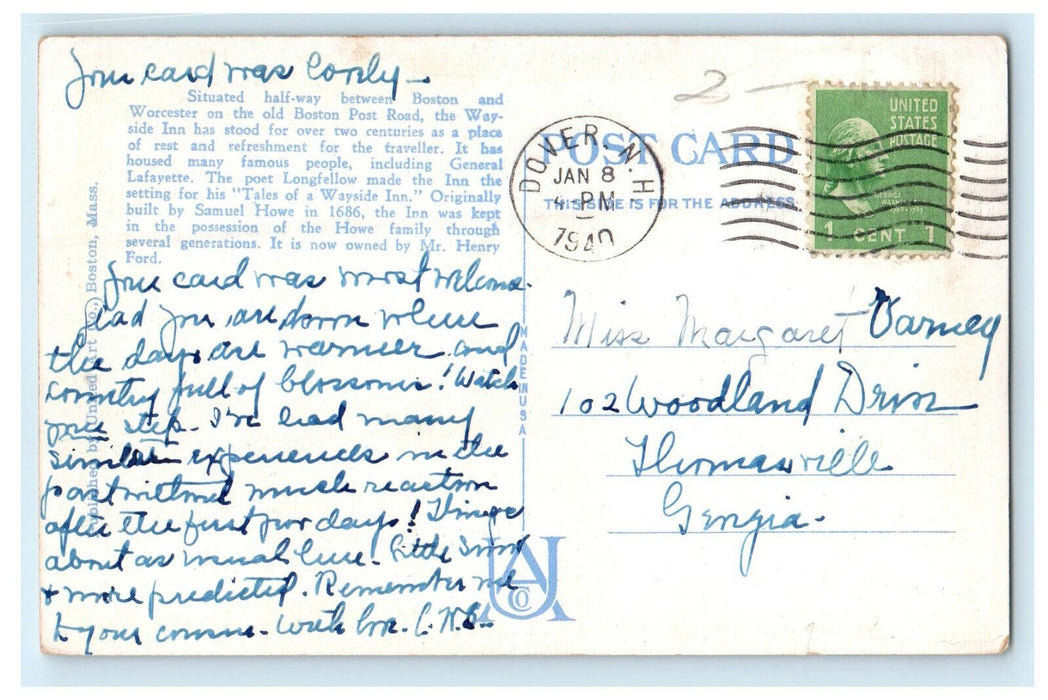 Your card was lovely -
Situated half-way between Boston and
Worcester on the old Boston Post Road, the Way-
side Inn has stood for over two centuries as a place
of rest and refreshment for the traveller. It has
housed many famous people, including General
Lafayette. The poet Longfellow made the Inn the
setting for his "Tales of a Wayside Inn." Originally
built by Samuel Howe in 1686, the Inn was kept
in the possession of the Howe family through
several generations. It is now owned by Mr. Henry
Ford.
Your card was most welcome.
you are down where
the days are warmer and
country full of blossoms! Watch
your step. I've had many
similar experiences in the
past without much reaction
after the first few days! Things
about as usual here. Little snow
& more predicted. Remember me
to your cousin. With love. C.W.
Published by United Art Co., Boston, Mass.
MADE IN USA
AU CO
2 -
POST CARD
THIS SIDE IS FOR THE ADDRESS
DOVER, N.H
JAN 8
4 PM
1940
UNITED
STATES
POSTAGE
1 CENT 1
Miss Margaret Varney
102 Woodland Drive
Thomasville
Georgia.